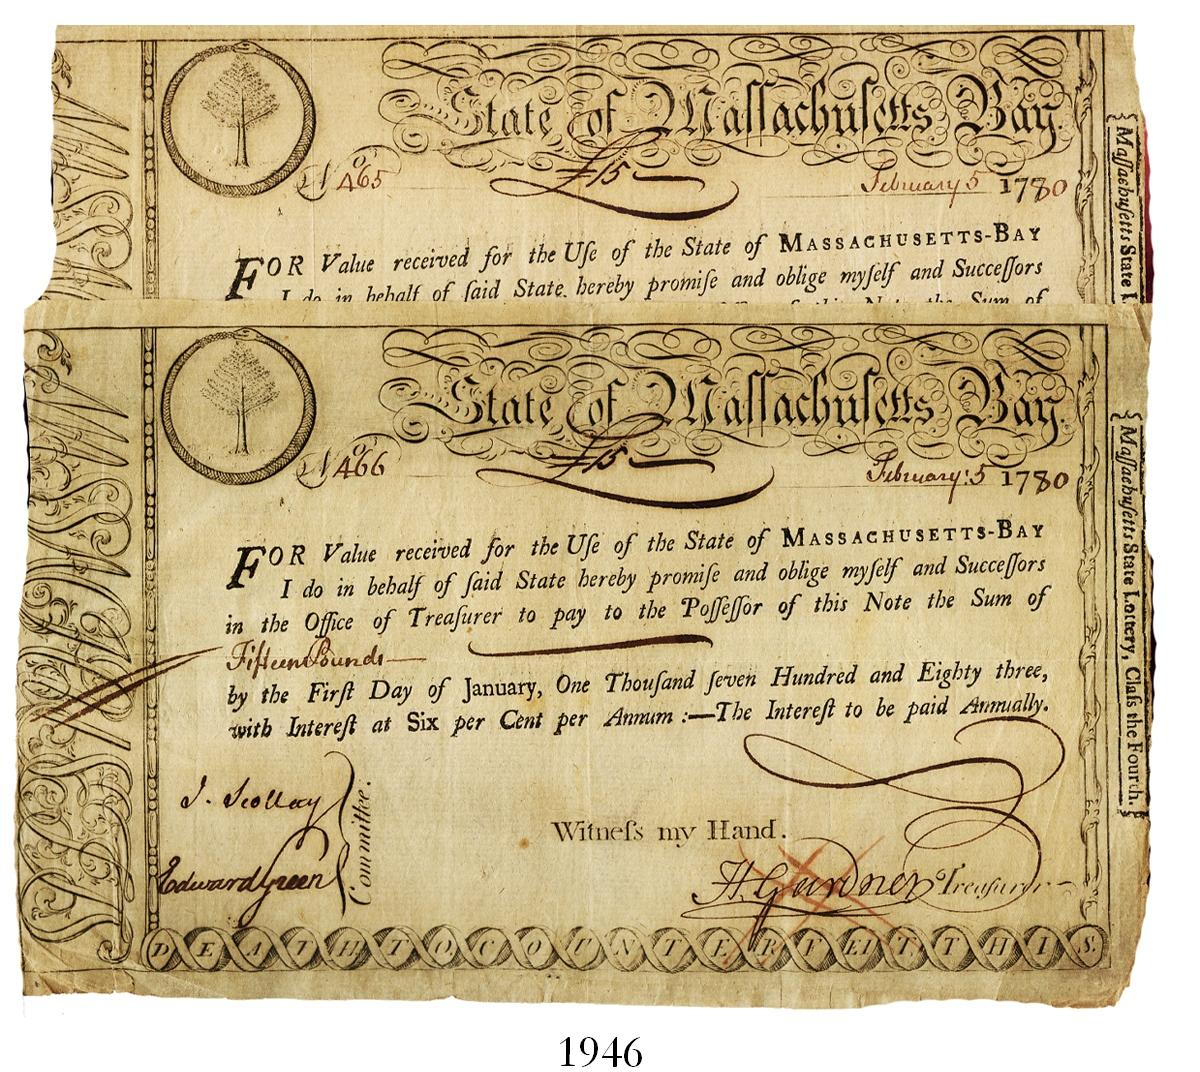 State of Maſſachuſetts Bay.
No 465
£15
February 5 1780
FOR Value received for the Uſe of the State of MASSACHUSETTS-BAY
I do in behalf of ſaid State hereby promiſe and oblige myſelf and Succeſſors
this Note the Sum of
Maſſachuſetts State L
State of Maſſachuſetts Bay.
No 466
£15
February: 5 1780
FOR Value received for the Uſe of the State of MASSACHUSETTS-BAY
I do in behalf of ſaid State hereby promiſe and oblige myſelf and Succeſſors
in the Office of Treaſurer to pay to the Poſſeſſor of this Note the Sum of
Fifteen Pounds—
by the Firſt Day of January, One Thouſand ſeven Hundred and Eighty three,
with Intereſt at Six per Cent per Annum :—The Intereſt to be paid Annually.
J. Scollay
Edward Green
Committee.
Witneſs my Hand.
H Gardner Treaſurer
DEATH TO COUNTERFEIT THIS.
Maſſachuſetts State Lottery, Claſs the Fourth.
1946